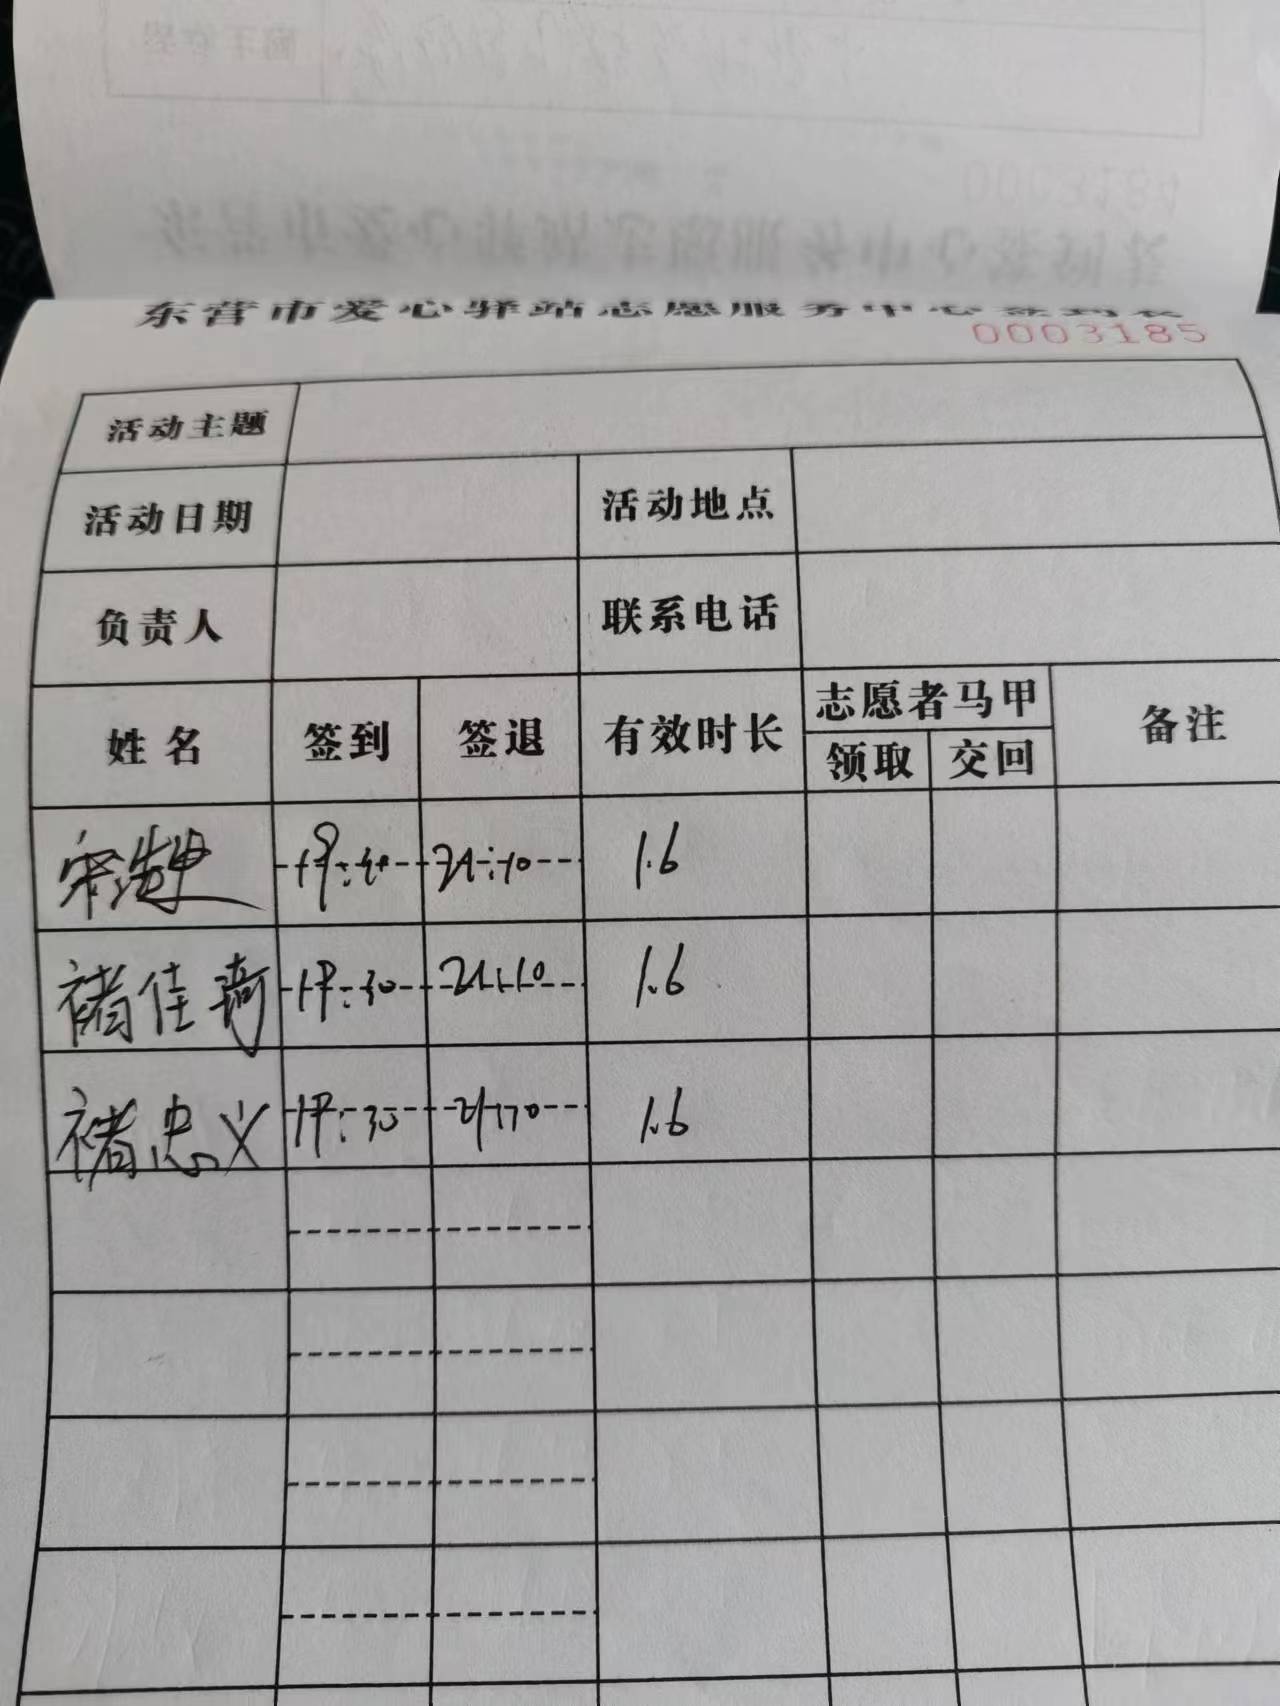 东营市爱心驿站志愿服务中心签到表
0003185
活动主题
活动日期 活动地点
负责人 联系电话
姓名 签到 签退 有效时长 志愿者马甲 备注
领取 交回
21:10 1.6
褚佳琦 21:10 1.6
褚忠义 19:30 21:10 1.6